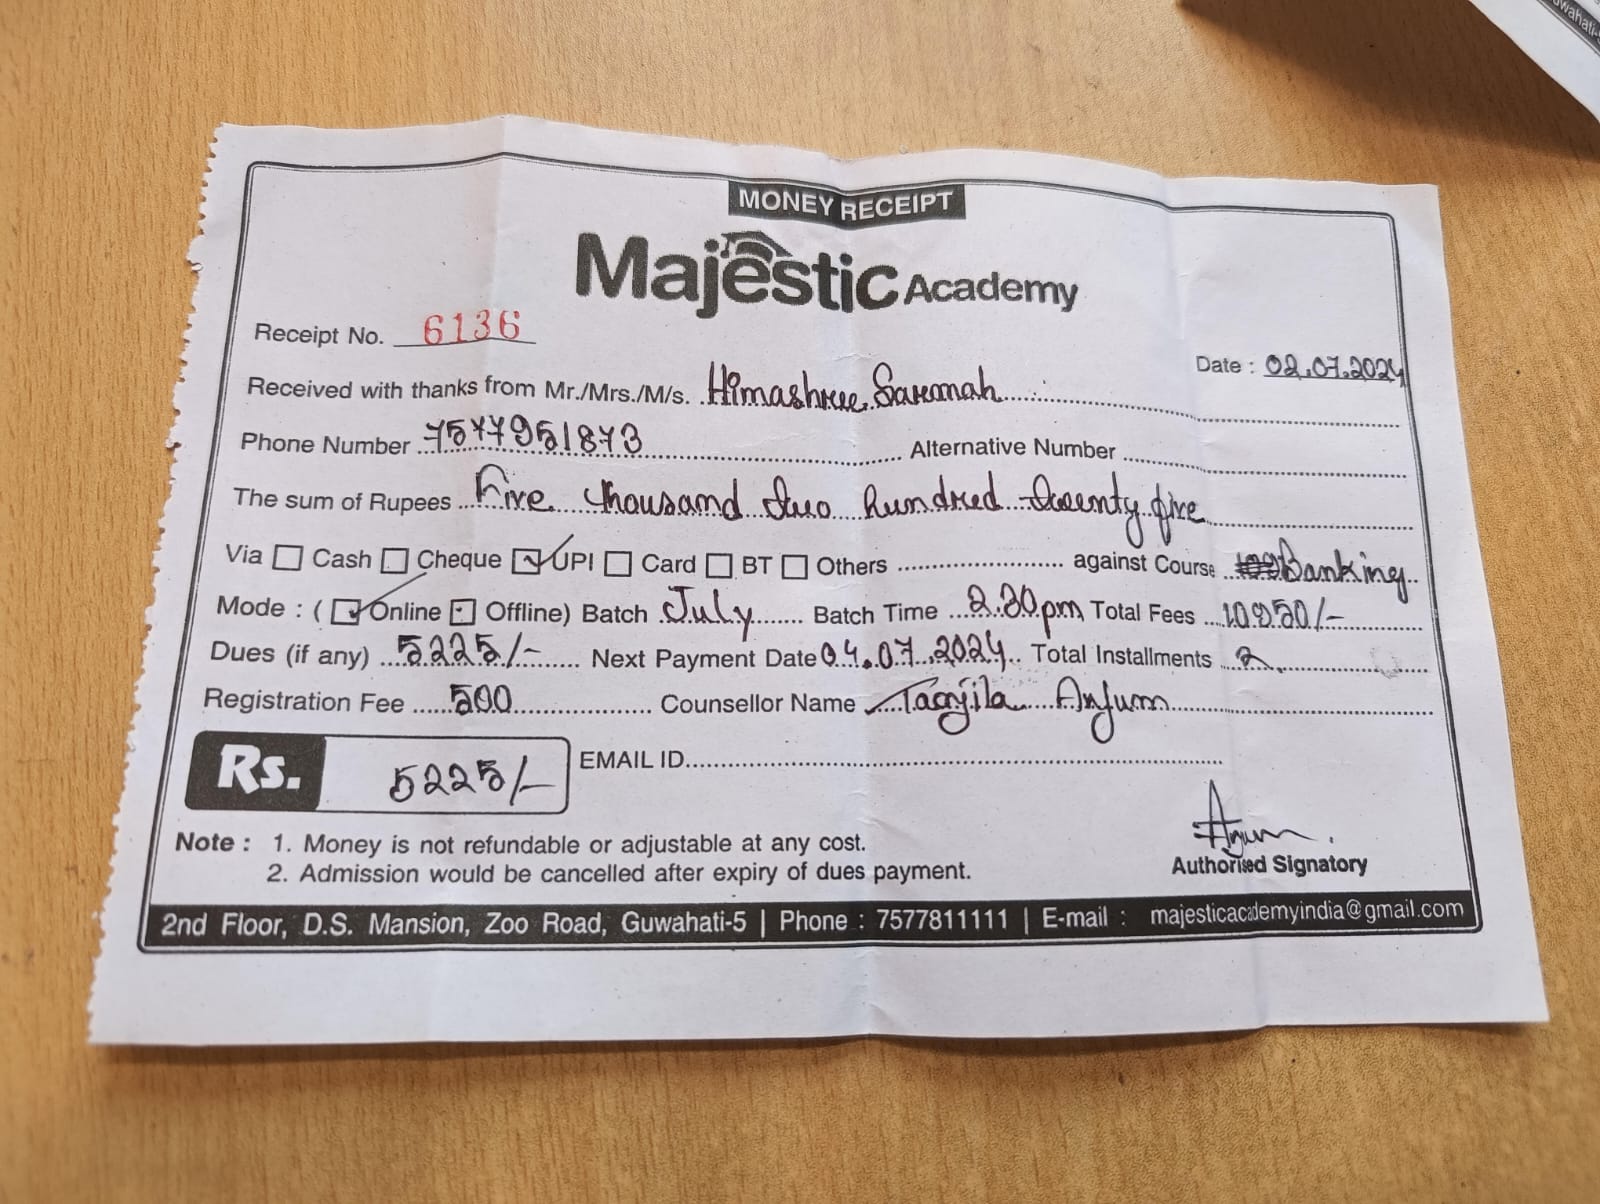 MONEY RECEIPT
Majestic Academy
Receipt No. 6136
Date : 02.07.2024
Received with thanks from Mr./Mrs./M/s. Himashree Sarmah
Phone Number 7577951873 Alternative Number
The sum of Rupees Five thousand two hundred twenty five
Via Cash Cheque UPI Card BT Others against Course Banking
Mode : ( Online Offline) Batch July Batch Time 2.30pm Total Fees
Dues (if any) 5225/- Next Payment Date 04.07.2024 Total Installments 2
Registration Fee 500 Counsellor Name Anjum
Rs. 5225/-
EMAIL ID
Note : 1. Money is not refundable or adjustable at any cost.
2. Admission would be cancelled after expiry of dues payment.
Anjum
Authorised Signatory
2nd Floor, D.S. Mansion, Zoo Road, Guwahati-5 | Phone : 7577811111 | E-mail : majesticacademyindia@gmail.com